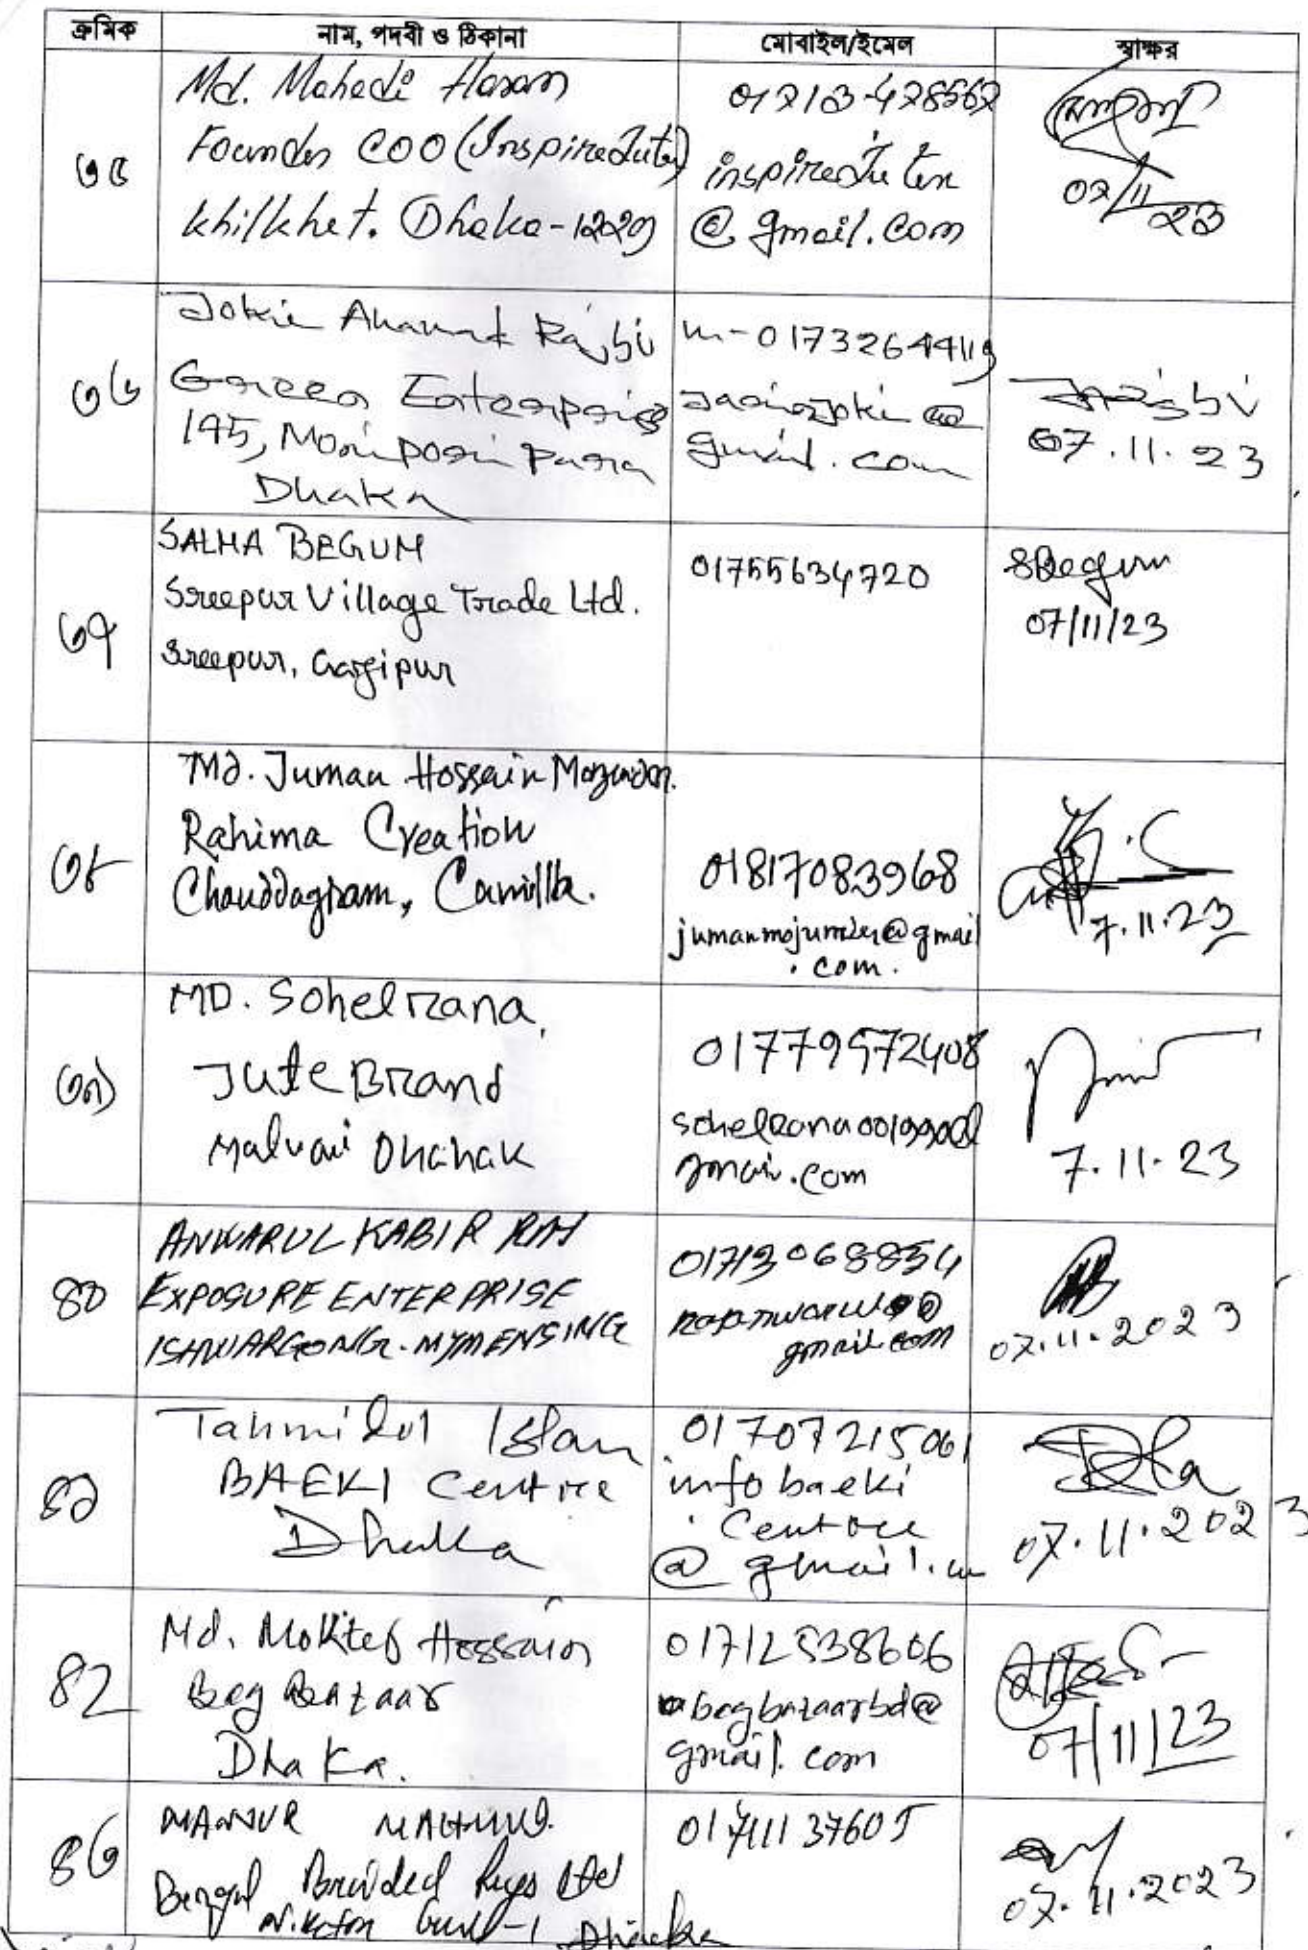 ক্রমিক নাম, পদবী ও ঠিকানা মোবাইল/ইমেল স্বাক্ষর
৩৫
Md. Mahedi Hasan
Founder COO (InspireJute)
Khilkhet. Dhaka-1229
inspireJutex
@gmail.com
07/11/23
৩৬
Jokie Ahamed Rajbi
Green Enterprise
195, Monipori Para
Dhaka
m-01732644119
gmail.com
07.11.23
৩৭
SALMA BEGUM
Sreepur Village Trade Ltd.
Sreepur, Gazipur
01755634720
SBegum
07/11/23
৩৮
Md. Juman Hossain
Rahima Creation
Chouddagram, Comilla.
01817083968
jumanmojumder@gmail
.com.
7.11.23
৩৯
MD. Sohel Rana,
Jute Brand
01779572408
gmail.com
7.11.23
৪০
ANWARUL KABIR
EXPOSURE ENTERPRISE
ISHWARGONG. MYMENSING
01713068854
gmail.com
07.11.2023
৪১
Tahmidul Islam
BAEKI Centre
Dhaka
01707215061
infobaeki
Centre
@gmail.
07.11.2023
৪২
Md. Mokter Hossain
Bag Bazaar
Dhaka.
01712538606
bagbazaarbd@
gmail.com
07/11/23
৪৩
MAHMUD.
Bengal Braided Rugs Ltd
Dhaka
01711137605
07.11.2023